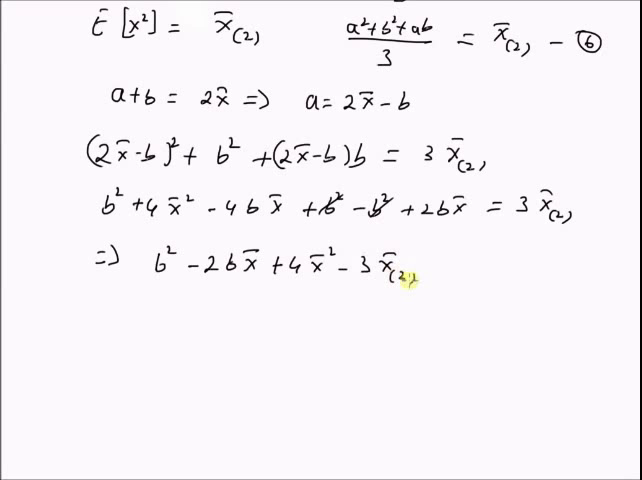 E[x²] = x̄₍₂₎   (a²+b²+ab)/3 = x̄₍₂₎ - ⑥
a+b = 2x̄ => a = 2x̄ - b
(2x̄-b)² + b² + (2x̄-b)b = 3x̄₍₂₎
b² + 4x̄² - 4bx̄ + b² - b² + 2bx̄ = 3x̄₍₂₎
=> b² - 2bx̄ + 4x̄² - 3x̄₍₂₎